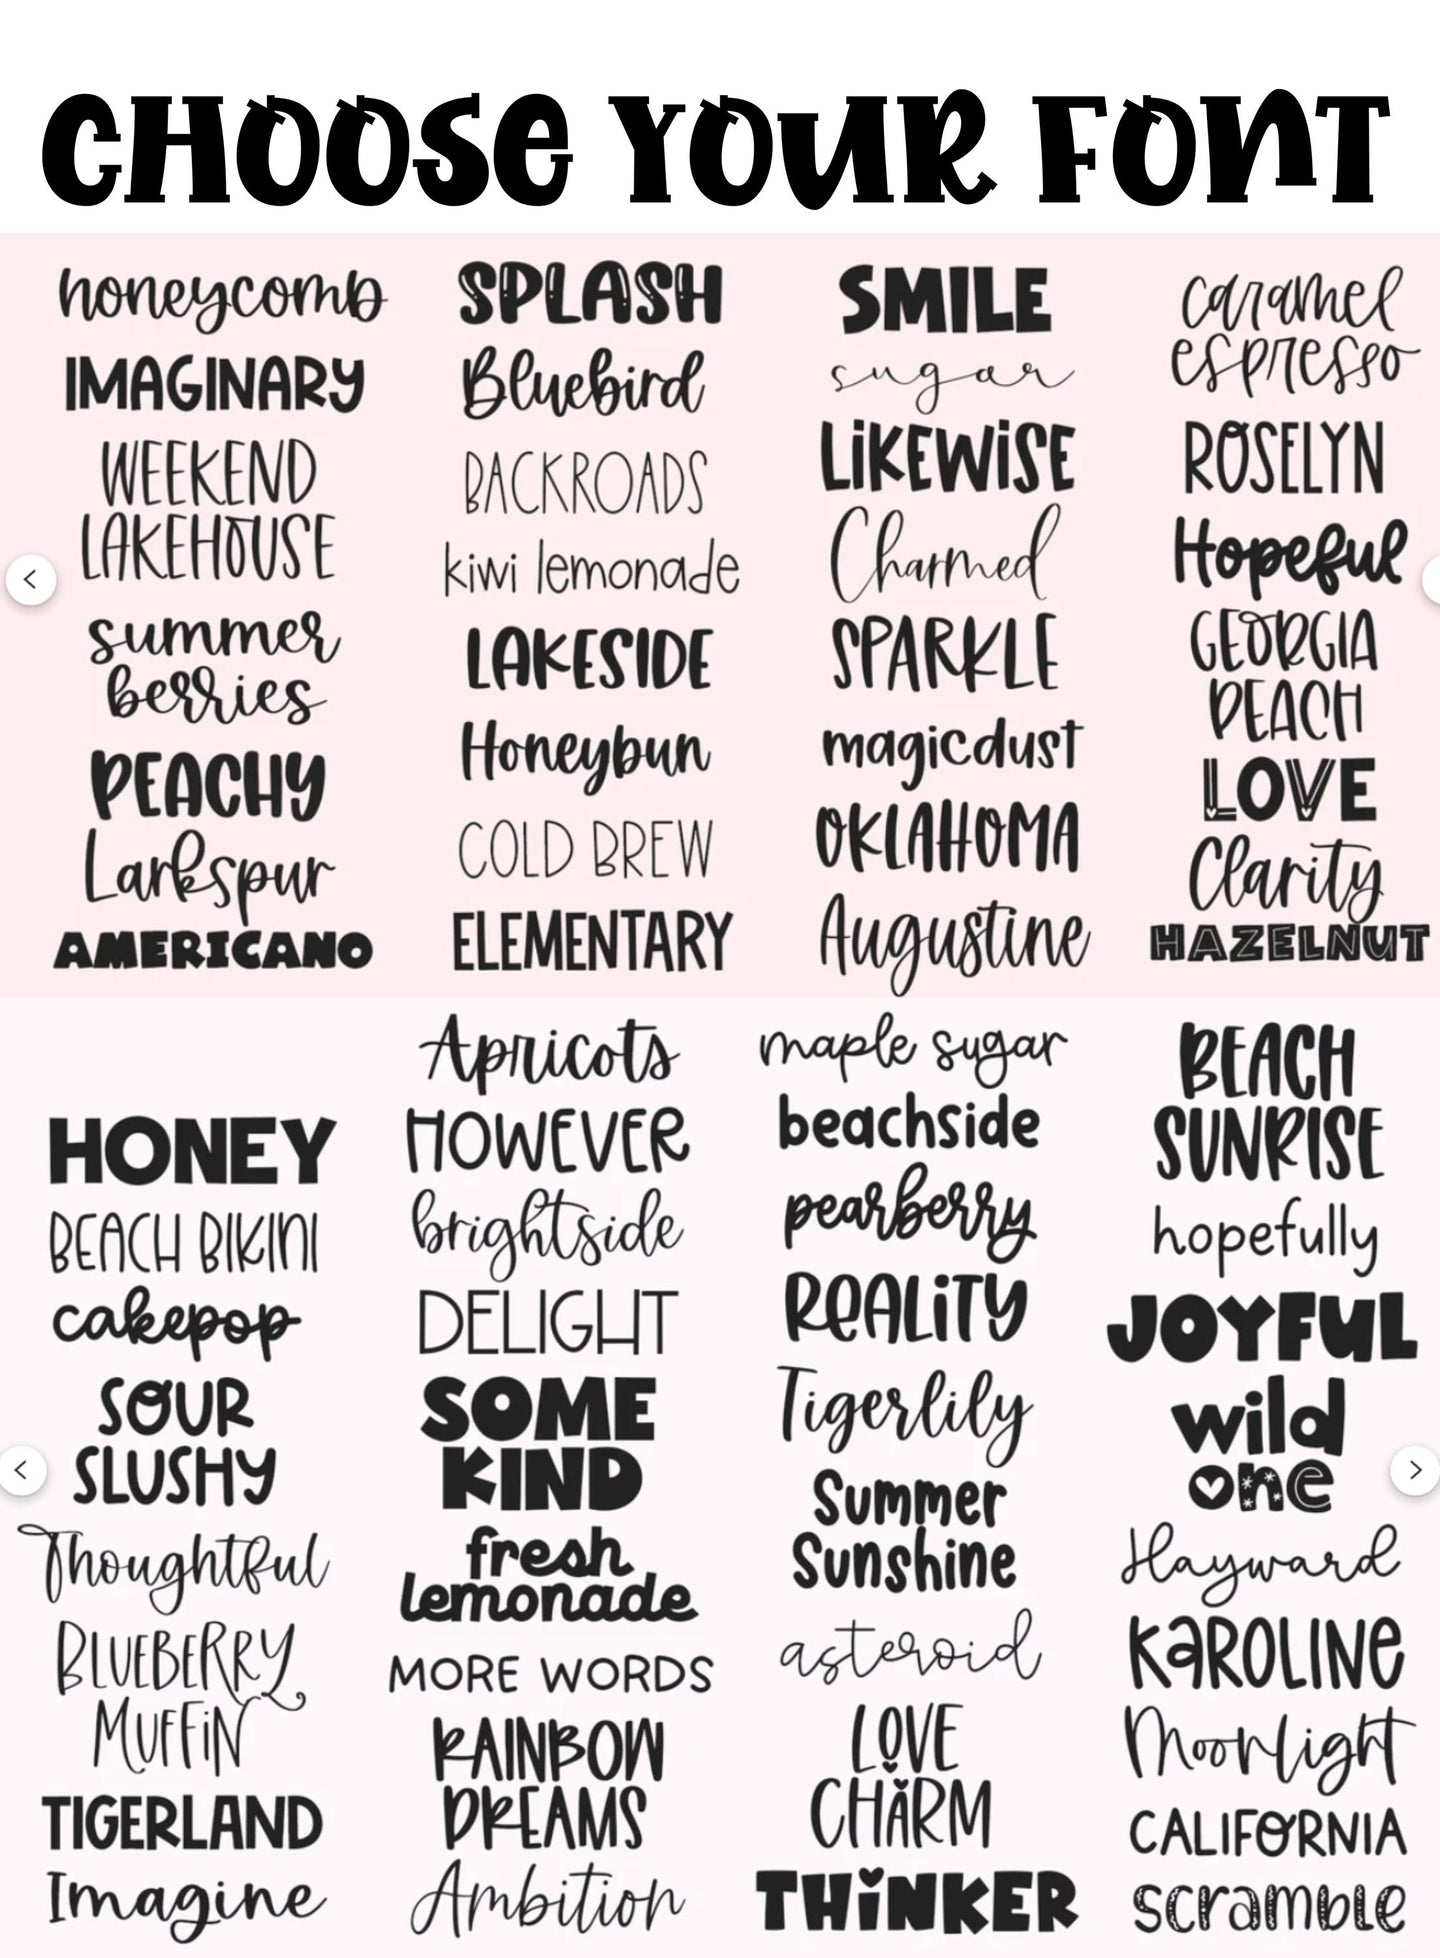 CHOOSE YOUR FONT
honeycomb
IMAGINARY
WEEKEND
LAKEHOUSE
summer
berries
PEACHY
Larkspur
AMERICANO
SPLASH
Bluebird
BACKROADS
kiwi lemonade
LAKESIDE
Honeybun
COLD BREW
ELEMENTARY
SMILE
sugar
LiKEWiSE
Charmed
SPARKLE
magicdust
OKLAHOMA
Augustine
caramel
espresso
ROSELYN
Hopeful
GEORGIA
PEACH
LOVE
Clarity
HAZELNUT
HONEY
BEACH BIKINI
cakepop
SOUR
SLUSHY
Thoughtful
BLUEBERRY
MUFFiN
TIGERLAND
Imagine
Apricots
HOWEVER
brightside
DELIGHT
SOME
KIND
fresh
lemonade
MORE WORDS
RAINBOW
DREAMS
Ambition
maple sugar
beachside
pearberry
REALiTY
Tigerlily
Summer
Sunshine
asteroid
LOVE
CHARM
THiNKER
BEACH
SUNRISE
hopefully
JOYFUL
wild
one
Hayward
KaROLINe
Moonlight
CALIFORNIA
scramble